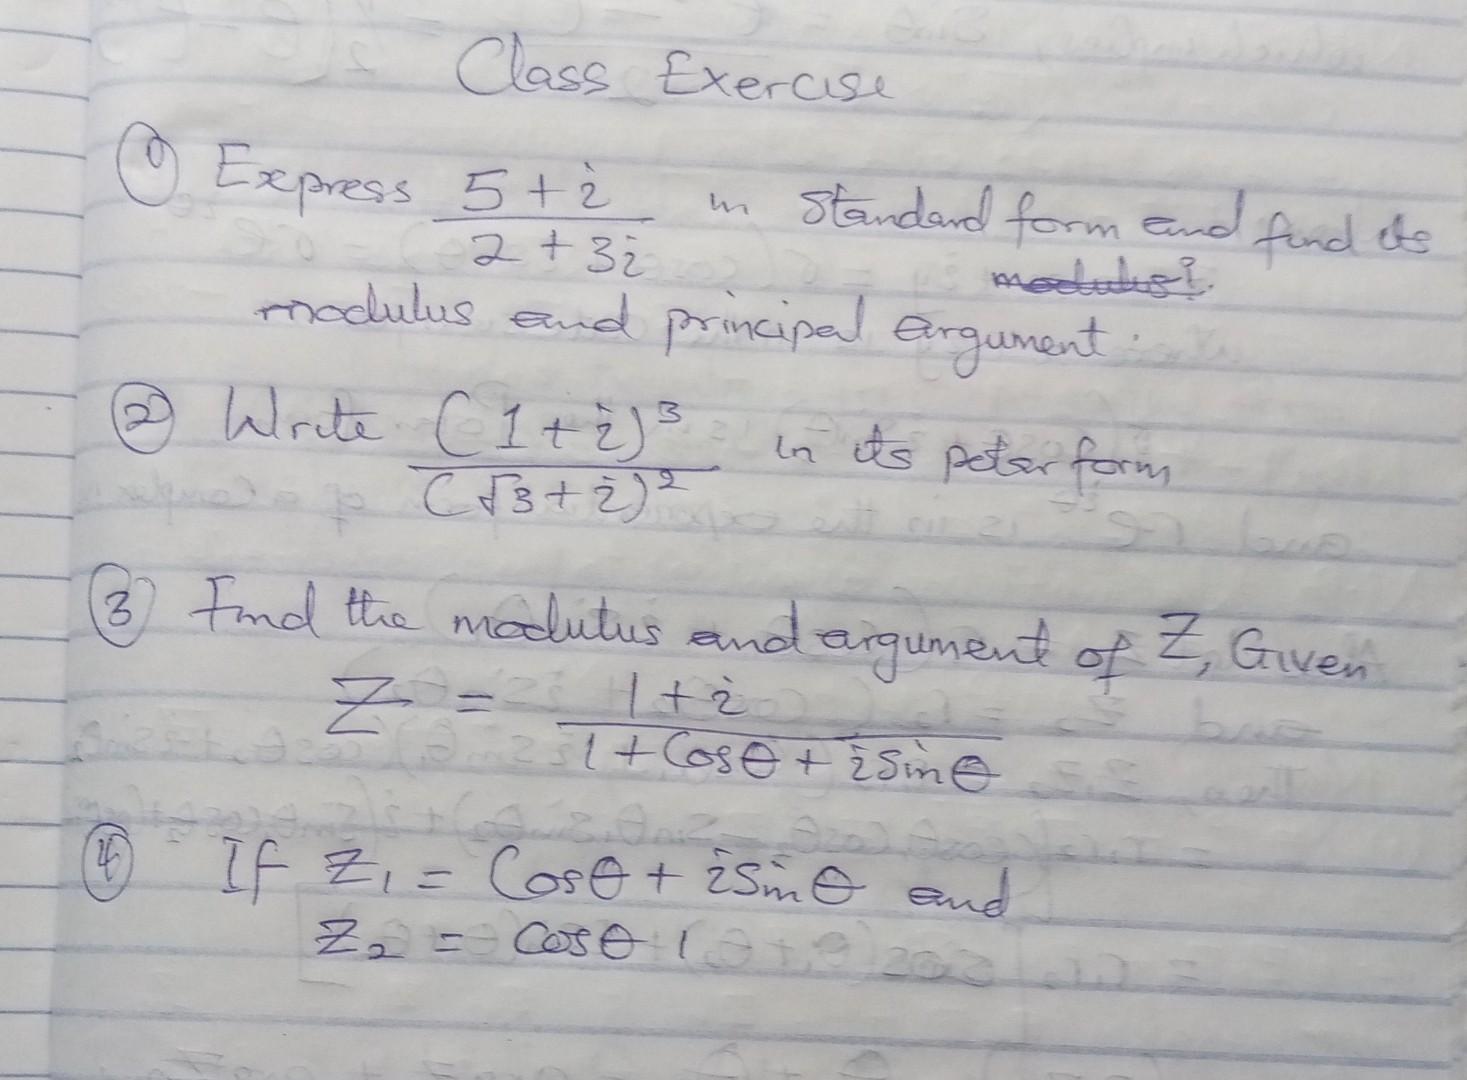 Class Exercise
① Express 5 + i / 2 + 3i in standard form and find its
modulus?
modulus and principal argument.
② Write (1 + i)³ / (√3 + i)² in its polar form
③ Find the modulus and argument of Z, Given
Z = 1 + i / 1 + Cosθ + iSinθ
④ If Z₁ = Cosθ + iSinθ and
Z₂ = Cosθ